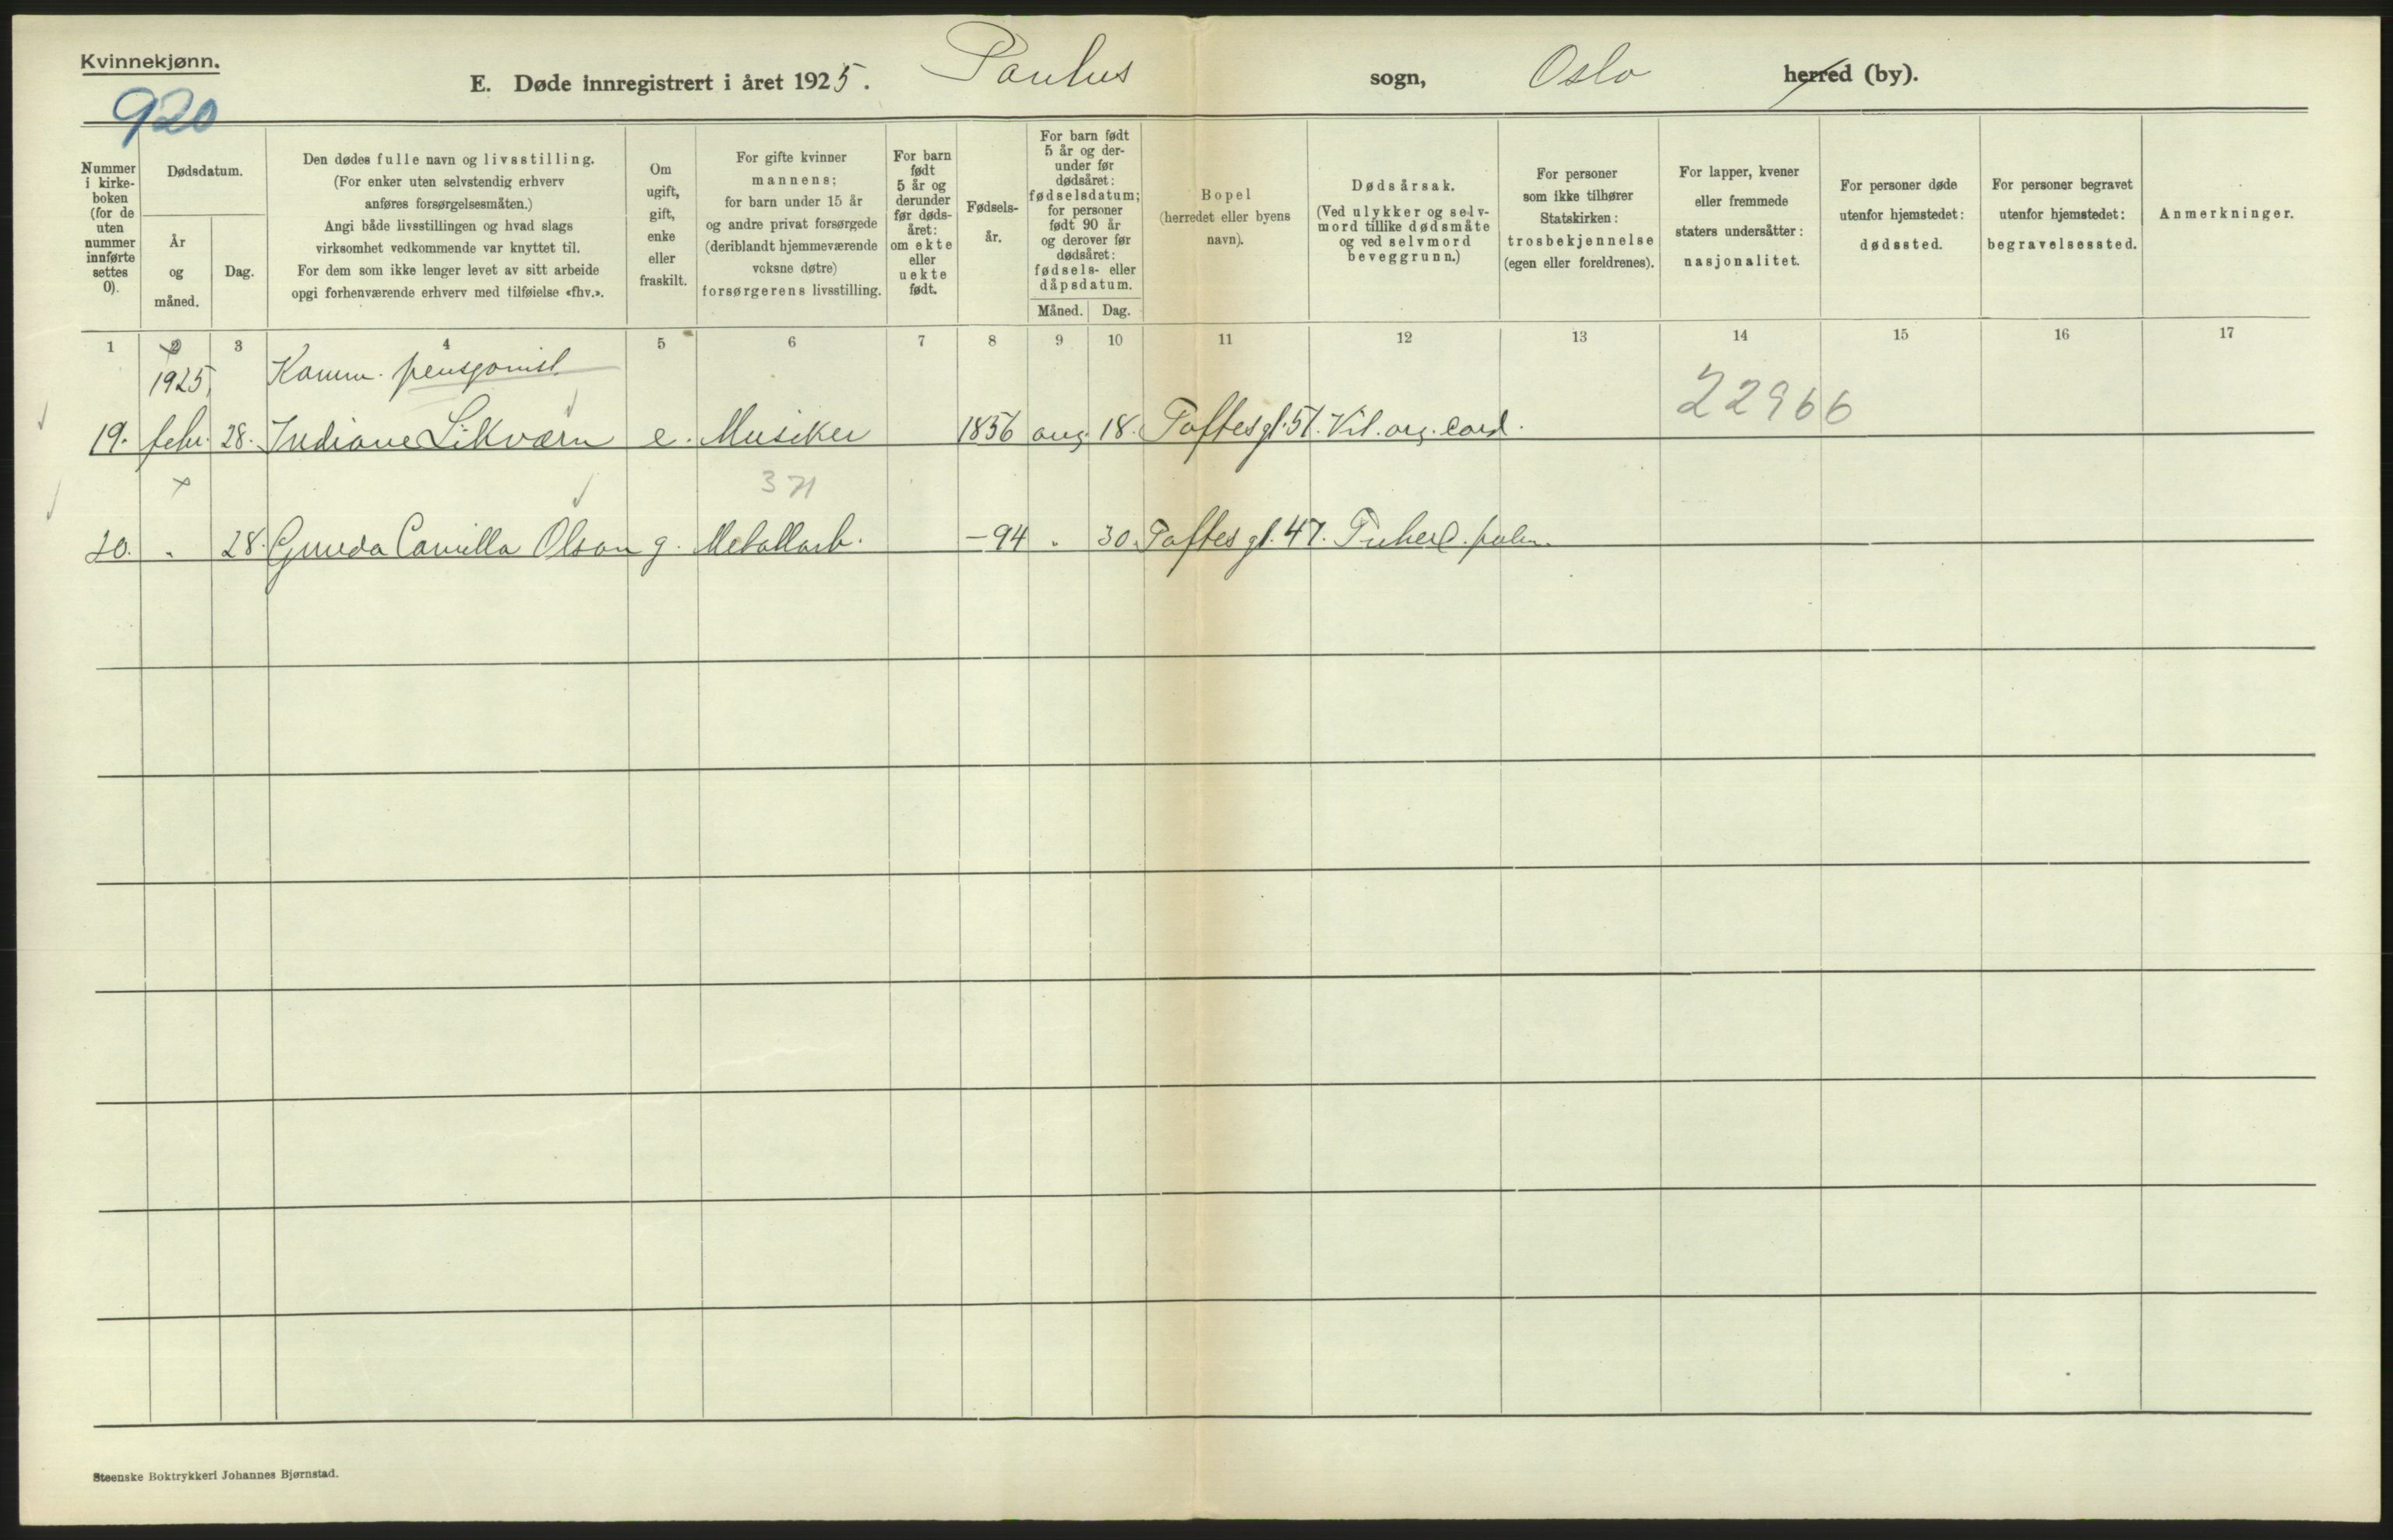 Kvinnekjønn.
920
E. Døde innregistrert i året 1925. Paulus sogn, Oslo herred (by).
Nummer i kirke- boken (for de uten nummer innførte settes 0).
Dødsdatum.
År og måned.
Dag.
Den dødes fulle navn og livsstilling.
(For enker uten selvstendig erhverv
anføres forsørgelsesmåten.)
Angi både livsstillingen og hvad slags
virksomhet vedkommende var knyttet til.
For dem som ikke lenger levet av sitt arbeide
opgi forhenværende erhverv med tilføielse «fhv.».
Om
ugift,
gift,
enke
eller
fraskilt.
For gifte kvinner
mannens;
for barn under 15 år
og andre privat forsørgede
(deriblandt hjemmeværende
voksne døtre)
forsørgerens livsstilling.
For barn
født
5 år og
derunder
før døds-
året:
om ekte
eller
uekte
født.
Fødsels-
år.
For barn født
5 år og der-
under før
dødsåret:
fødselsdatum;
for personer
født 90 år
og derover før
dødsåret:
fødsels- eller
dåpsdatum.
Måned. Dag.
Bopel
(herredet eller byens
navn).
Dødsårsak.
(Ved ulykker og selv-
mord tillike dødsmåte
og ved selvmord
beveggrunn.)
For personer
som ikke tilhører
Statskirken:
trosbekjennelse
(egen eller foreldrenes).
For lapper, kvener
eller fremmede
staters undersåtter:
nasjonalitet.
For personer døde
utenfor hjemstedet:
dødssted.
For personer begravet
utenfor hjemstedet:
begravelsessted.
Anmerkninger.
1 2 3 4 5 6 7 8 9 10 11 12 13 14 15 16 17
1925, Komm. pensjonist 22966
19. febr. 28. Indiane Likværn e. Musiker 1856 aug. 18. Toftesgt. 51. Vit. org. cord.
371
20. " 28. Gunda Camilla Olson g. Metallarb. -94 " 30. Toftesgt. 47. Tuberc. pulm.
Steenske Boktrykkeri Johannes Bjørnstad.